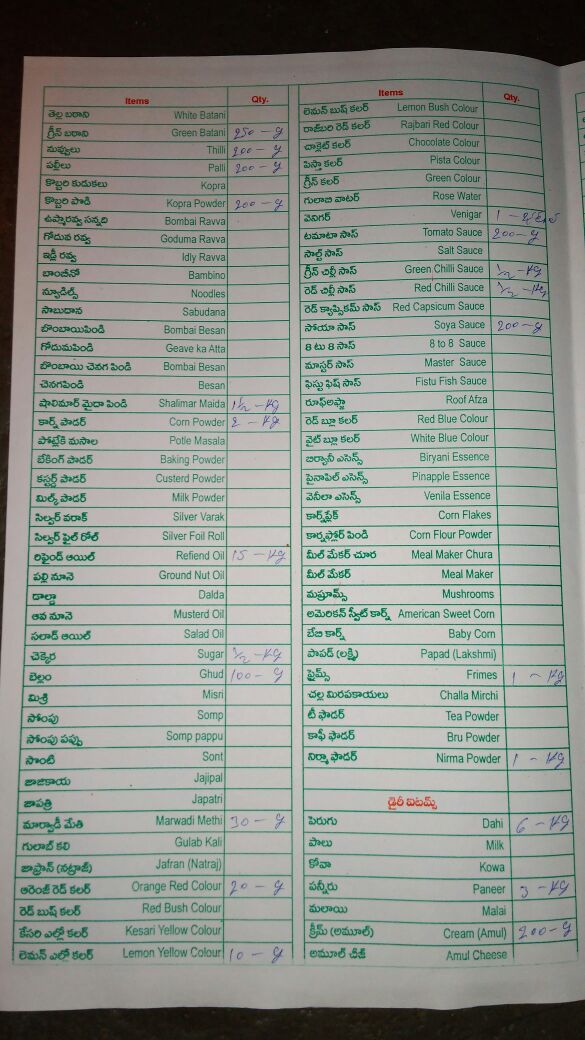 Items Qty.
తెల్ల బఠాని White Batani
గ్రీన్ బఠాని Green Batani 250 - g
నువ్వులు Thilli 200 - g
పల్లీలు Palli 200 - g
కొబ్బరి కుడుకలు Kopra
కొబ్బరి పొడి Kopra Powder 200 - g
ఉప్మారవ్వ సన్నది Bombai Ravva
గోదువ రవ్వ Goduma Ravva
ఇడ్లీ రవ్వ Idly Ravva
బాంబీనో Bambino
న్యూడిల్స్ Noodles
సాబుదాన Sabudana
బొంబాయిపిండి Bombai Besan
గోదుమపిండి Geave ka Atta
బొంబాయి చెనగ పిండి Bombai Besan
చెనగపిండి Besan
షాలిమార్ మైదా పిండి Shalimar Maida 1 1/2 - Kg
కార్న్ పౌడర్ Corn Powder 2 - Kg
పోట్లేకి మసాల Potle Masala
బేకింగ్ పౌడర్ Baking Powder
కస్టర్డ్ పౌడర్ Custerd Powder
మిల్క్ పౌడర్ Milk Powder
సిల్వర్ వరాక్ Silver Varak
సిల్వర్ ఫైల్ రోల్ Silver Foil Roll
రిఫైండ్ ఆయిల్ Refiend Oil 15 - Kg
పల్లి నూనె Ground Nut Oil
డాల్డా Dalda
ఆవ నూనె Musterd Oil
సలాడ్ ఆయిల్ Salad Oil
చెక్కెర Sugar 1/2 - Kg
బెల్లం Ghud 100 - g
మిశ్రి Misri
సోంపు Somp
సోంపు పప్పు Somp pappu
సొంటి Sont
జాజికాయ Jajipal
జాపత్రి Japatri
మార్వాడీ మేతి Marwadi Methi 30 - g
గులాబ్ కలి Gulab Kali
జాఫ్రాన్ (నట్రాజ్) Jafran (Natraj)
ఆరెంజ్ రెడ్ కలర్ Orange Red Colour 20 - g
రెడ్ బుష్ కలర్ Red Bush Colour
కేసరి ఎల్లో కలర్ Kesari Yellow Colour
లెమన్ ఎల్లో కలర్ Lemon Yellow Colour 10 - g
Items Qty.
లెమన్ బుష్ కలర్ Lemon Bush Colour
రాజ్‌బరి రెడ్ కలర్ Rajbari Red Colour
చాక్లెట్ కలర్ Chocolate Colour
పిస్తా కలర్ Pista Colour
గ్రీన్ కలర్ Green Colour
గులాబి వాటర్ Rose Water
వెనిగర్ Venigar 1 -
టమాటా సాస్ Tomato Sauce 200 - g
సాల్ట్ సాస్ Salt Sauce
గ్రీన్ చిల్లీ సాస్ Green Chilli Sauce 1/2 - Kg
రెడ్ చిల్లీ సాస్ Red Chilli Sauce 1/2 - Kg
రెడ్ క్యాప్సికమ్ సాస్ Red Capsicum Sauce
సోయా సాస్ Soya Sauce 200 - g
8 టు 8 సాస్ 8 to 8 Sauce
మాస్టర్ సాస్ Master Sauce
ఫిస్టు ఫిష్ సాస్ Fistu Fish Sauce
రూఫ్అఫ్జా Roof Afza
రెడ్ బ్లూ కలర్ Red Blue Colour
వైట్ బ్లూ కలర్ White Blue Colour
బిర్యానీ ఎసెన్స్ Biryani Essence
పైనాపిల్ ఎసెన్స్ Pinapple Essence
వెనీలా ఎసెన్స్ Venila Essence
కార్న్‌ఫ్లేక్ Corn Flakes
కార్నఫ్లోర్ పిండి Corn Flour Powder
మీల్ మేకర్ చూర Meal Maker Chura
మీల్ మేకర్ Meal Maker
మష్రూమ్స్ Mushrooms
అమెరికన్ స్వీట్ కార్న్ American Sweet Corn
బేబి కార్న్ Baby Corn
పాపడ్ (లక్ష్మి) Papad (Lakshmi)
ఫ్రైమ్స్ Frimes 1 - Kg
చల్ల మిరపకాయలు Challa Mirchi
టీ ఫౌడర్ Tea Powder
కాఫీ ఫౌడర్ Bru Powder
నిర్మా ఫౌడర్ Nirma Powder 1 - Kg
డైరీ ఐటమ్స్
పెరుగు Dahi 6 - Kg
పాలు Milk
కోవా Kowa
పన్నీరు Paneer 3 - Kg
మలాయి Malai
క్రీమ్ (అమూల్) Cream (Amul) 200 - g
అమూల్ చీజ్ Amul Cheese